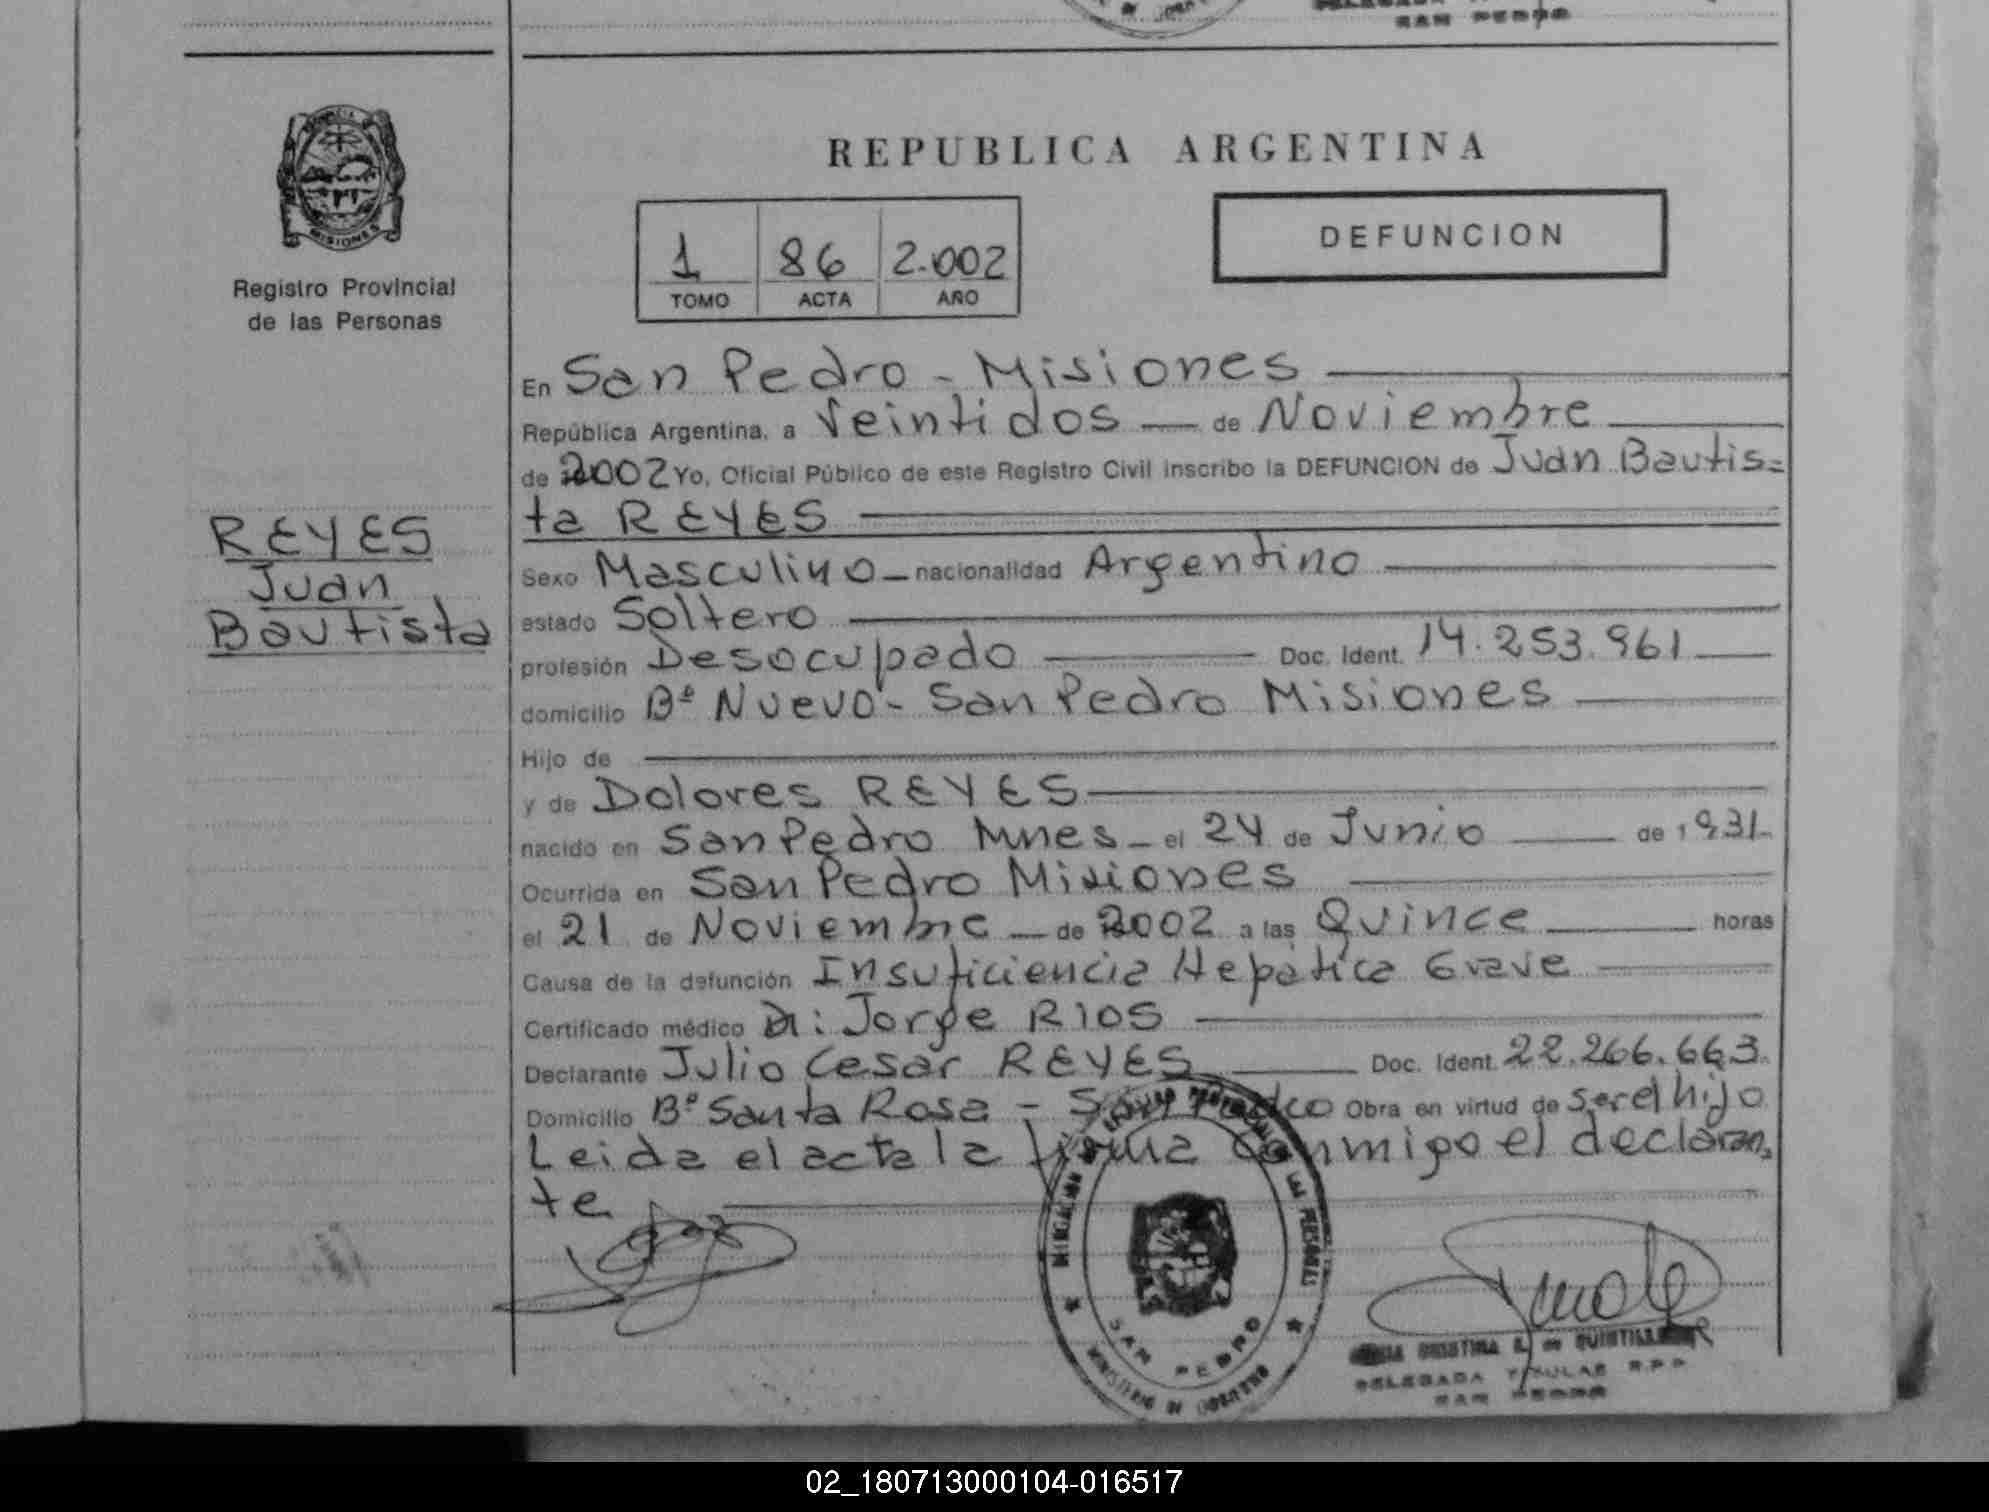 SAN PEDRO
MISIONES
Registro Provincial
de las Personas
REPUBLICA ARGENTINA
1 86 2.002
TOMO ACTA AÑO
DEFUNCION
En San Pedro - Misiones
República Argentina, a Veintidos de Noviembre
de 2002 Yo, Oficial Público de este Registro Civil inscribo la DEFUNCION de Juan Bautis=
ta REYES
REYES
Juan
Bautista
Sexo Masculino nacionalidad Argentino
estado Soltero
profesión Desocupado Doc. Ident. 14.253.961
domicilio Bº Nuevo - San Pedro Misiones
Hijo de
y de Dolores REYES
nacido en San Pedro Mnes el 24 de Junio de 1931
Ocurrida en San Pedro Misiones
el 21 de Noviembre de 2002 a las Quince horas
Causa de la defunción Insuficiencia Hepática Grave
Certificado médico Dr: Jorge RIOS
Declarante Julio Cesar REYES Doc. Ident. 22.266.663
Domicilio Bº Santa Rosa - San Pedro Obra en virtud de ser el hijo
Leida el acta la firma conmigo el declaran=
te
LAS PERSONAS
SAN PEDRO
MINISTERIO DE GOBIERNO
CRISTINA de QUINTILLAN
DELEGADA TITULAR R.P.P.
SAN PEDRO
02_180713000104-016517